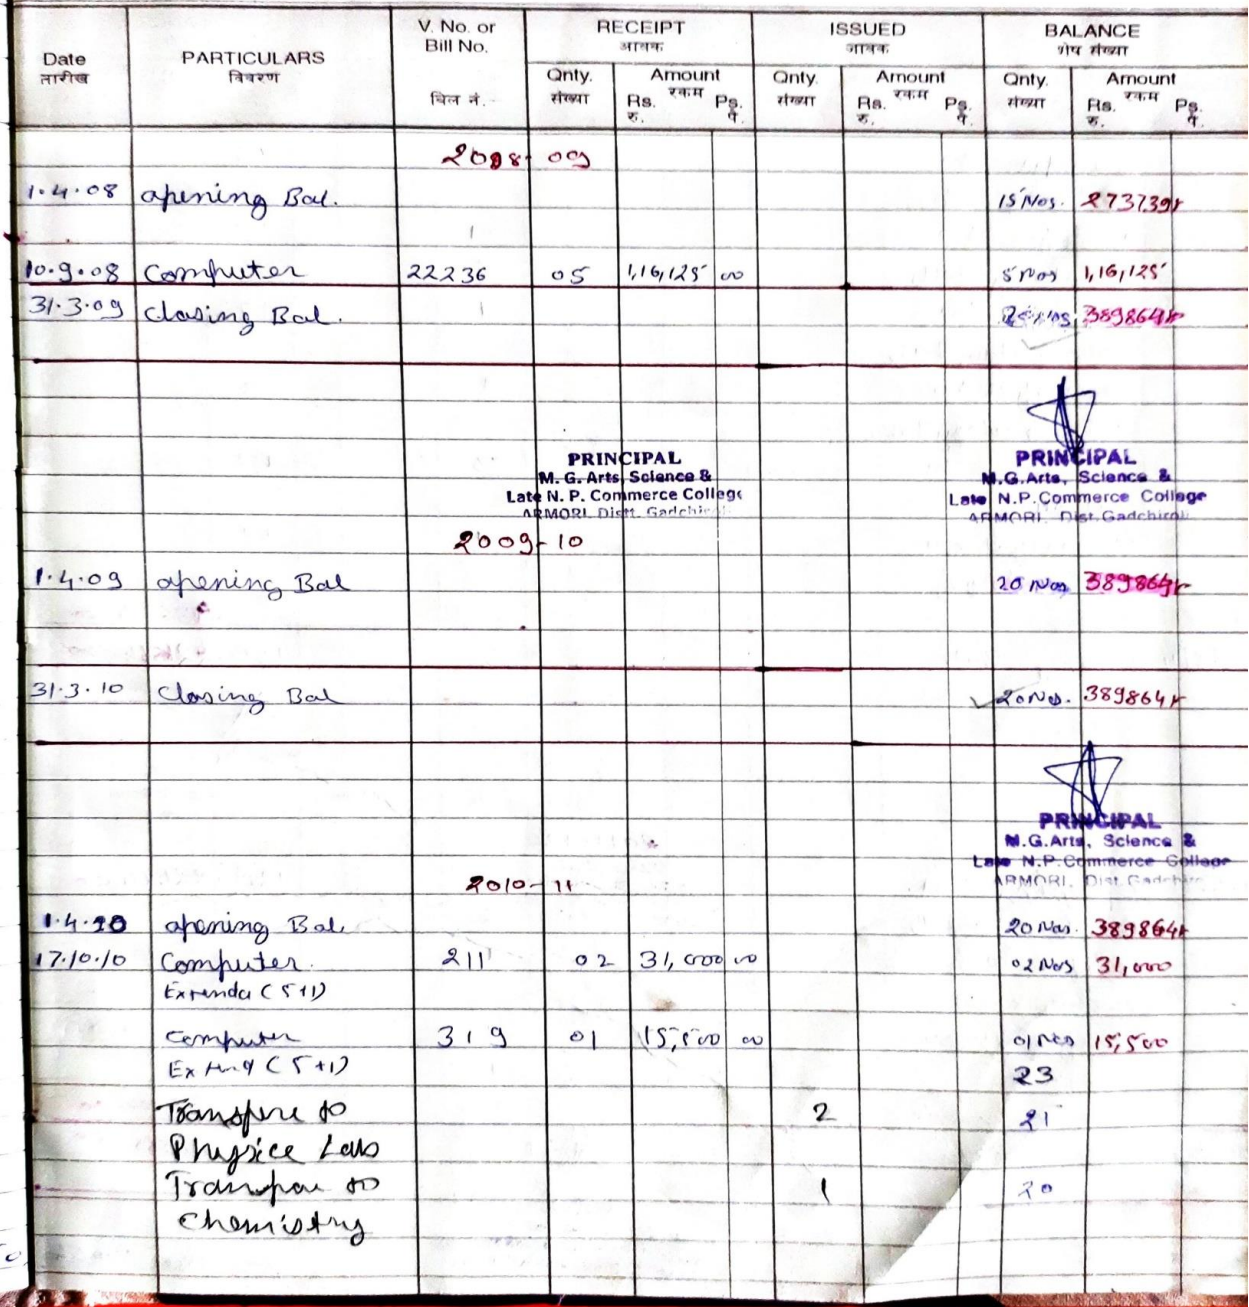 Date
तारीख
PARTICULARS
विवरण
V. No. or
Bill No.
बिल नं.
RECEIPT
आवक
ISSUED
जावक
BALANCE
शेष संख्या
Qnty.
संख्या
Amount
रकम
Rs.
रु.
Ps.
पै.
Qnty.
संख्या
Amount
रकम
Rs.
रु.
Ps.
पै.
Qnty.
संख्या
Amount
रकम
Rs.
रु.
Ps.
पै.
2008-09
1.4.08 opening Bal. 15 Nos. 273739
10.9.08 Computer 22236 05 1,16,125 00 5 Nos 1,16,125
31.3.09 Closing Bal. 389864
PRINCIPAL
M. G. Arts, Science &
Late N. P. Commerce College
ARMORI Distt. Gadchiroli
PRINCIPAL
M.G.Arts, Science &
Late N.P.Commerce College
ARMORI. Dist.Gadchiroli
2009-10
1.4.09 opening Bal 20 Nos 389864
31.3.10 Closing Bal 20 Nos. 389864
PRINCIPAL
M.G.Arts, Science &
Late N.P.Commerce College
ARMORI. Dist.Gadchiroli
2010-11
1.4.10 opening Bal. 20 Nos. 389864
17.10.10 Computer 211 02 31,000 00 02 Nos 31,000
(5+1)
Computer 319 01 15,500 00 01 Nos 15,500
(5+1) 23
Transfere to 2 21
Physice Lab
to 1 20
Chemistry